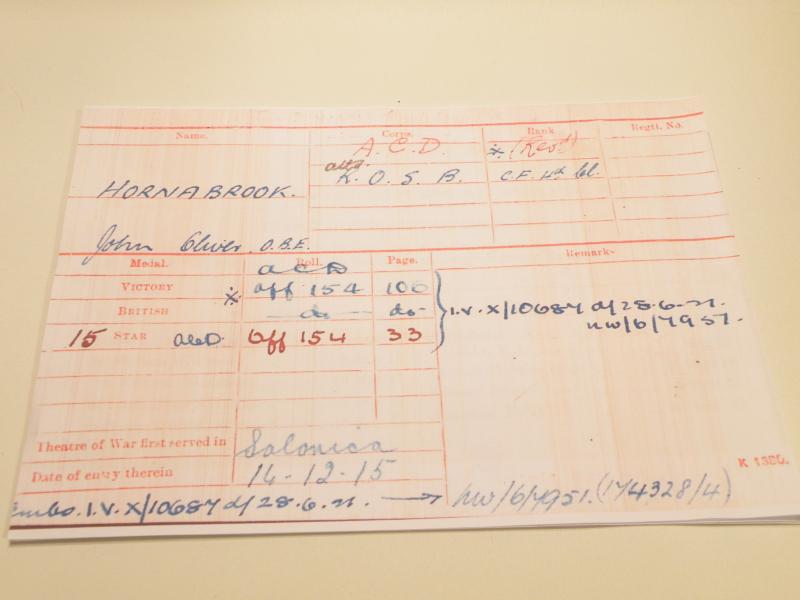 Name. Corps. Rank Regtl. No.
A.C.D. (Revd)
attd.
HORNABROOK. K.O.S.B. C.F. 4th Cl.
John Oliver. O.B.E.
Medal. Roll. Page. Remarks
A C D
VICTORY Off 154 100
BRITISH -do- do-
I.V. X/10687 d/28.6.21.
NW/6/7951.
15 STAR ACD. Off 154 33
Theatre of War first served in Salonica
Date of entry therein 14-12-15
K 1380.
I.V. X/10687 d/28.6.21. → NW/6/7951. (174328/4)